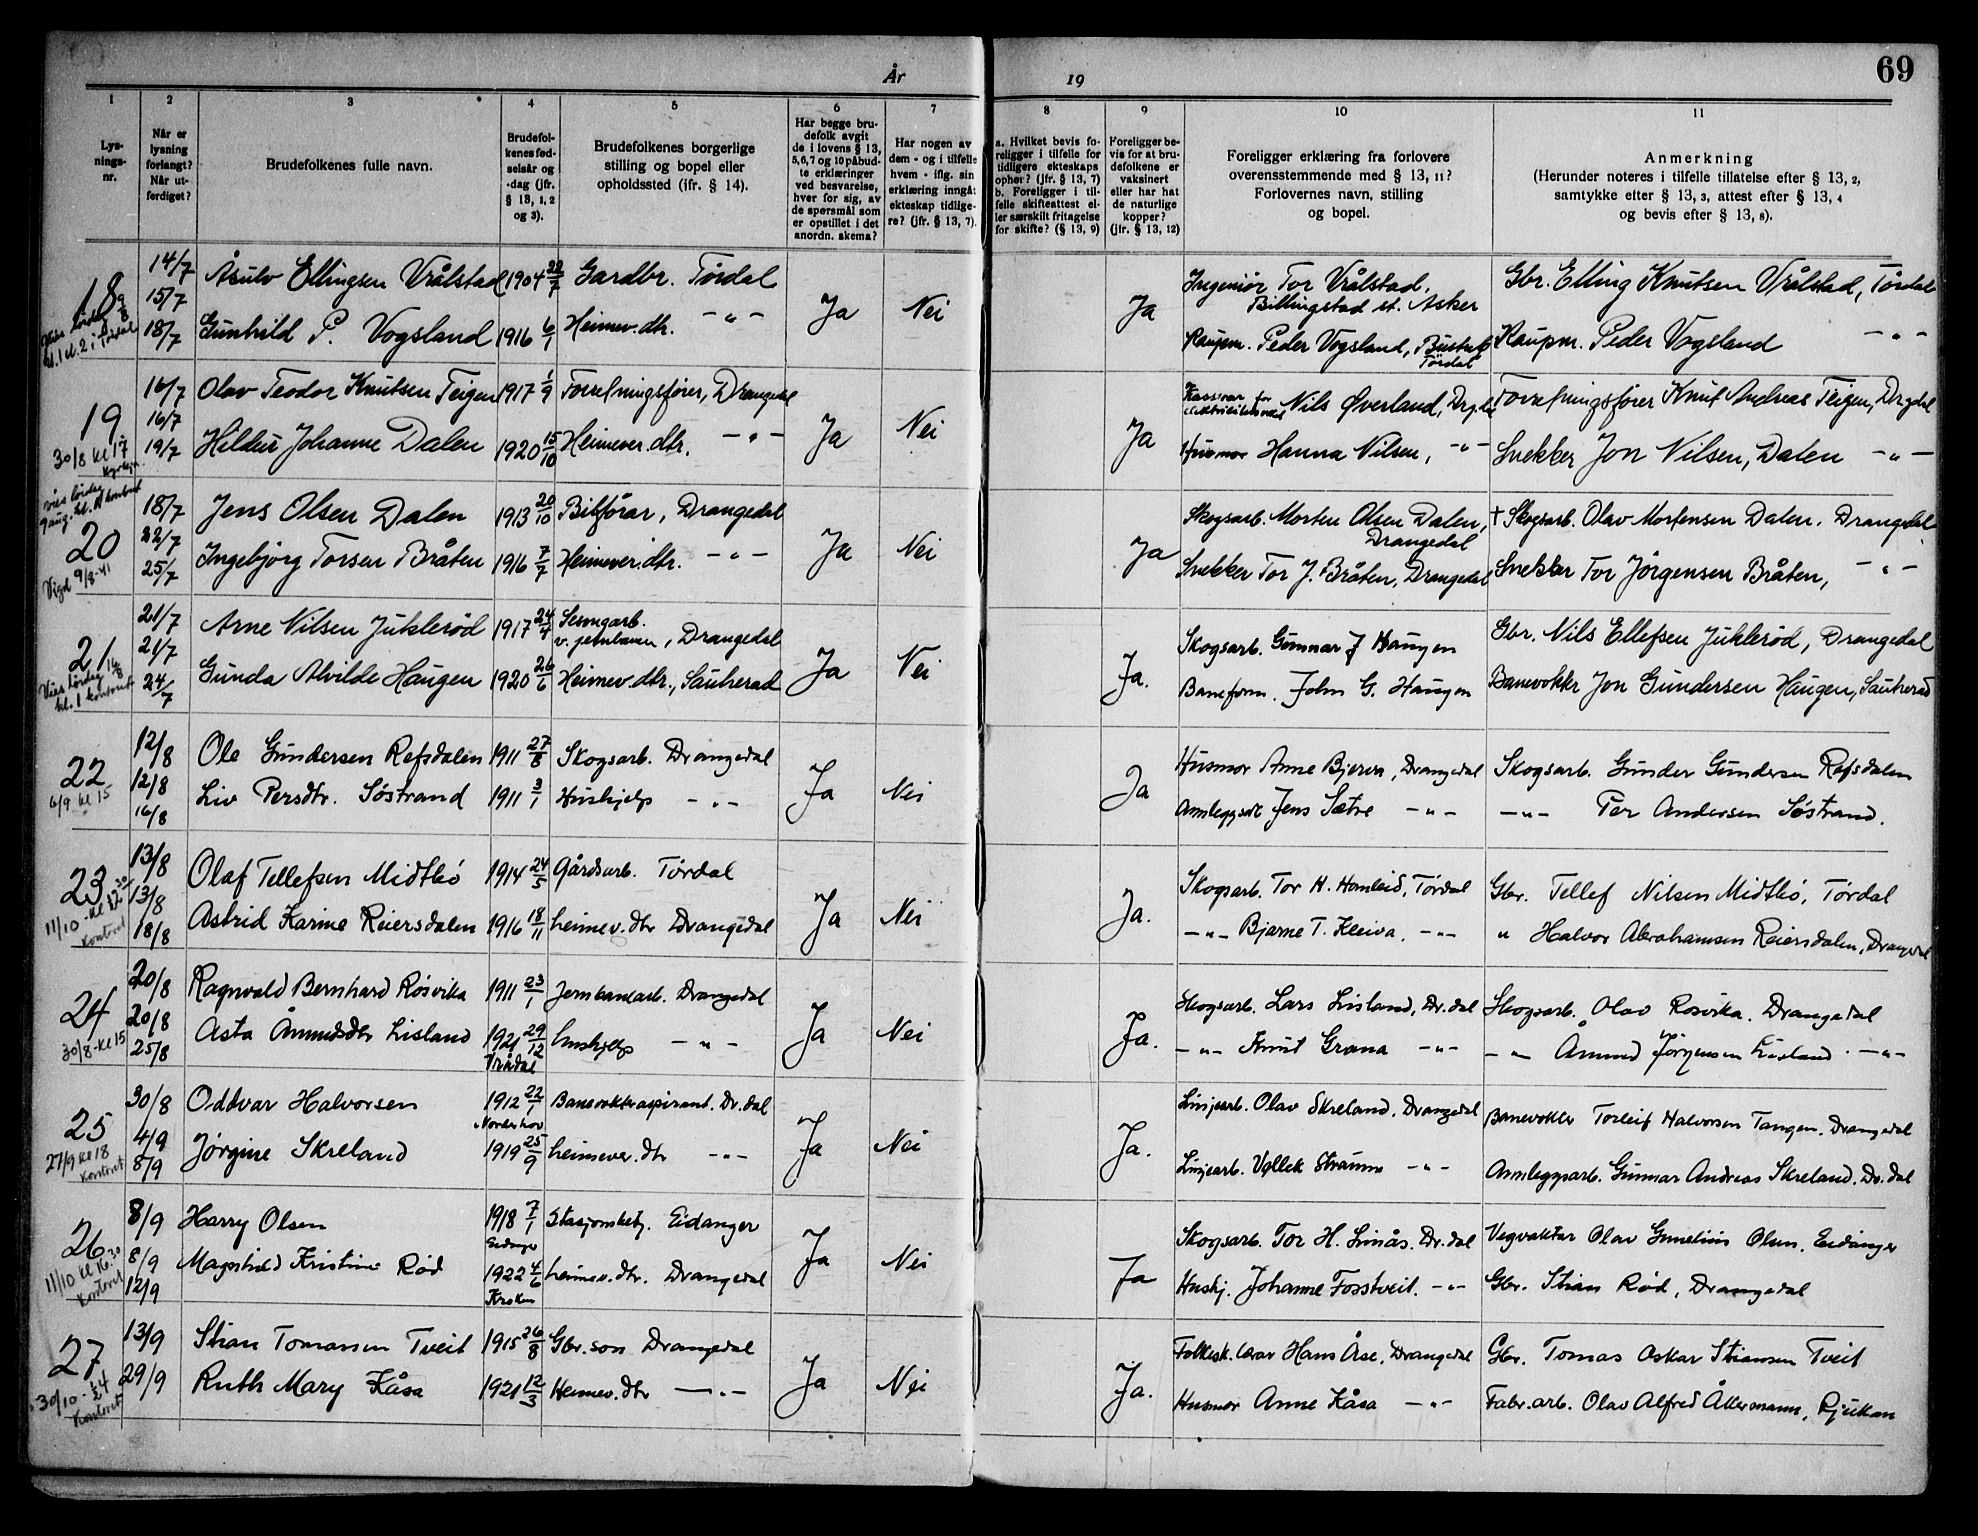 69
År
19
1
2
3
4
5
6
7
8
9
10
11
Lys-
nings-
nr.
Når er
lysning
forlangt?
Når ut-
ferdiget?
Brudefolkenes fulle navn.
Brudefol-
kenes fød-
selsår og
-dag (jfr.
§ 13, 1, 2
og 3).
Brudefolkenes borgerlige
stilling og bopel eller
opholdssted (ifr. § 14).
Har begge bru-
defolk avgit
de i lovens § 13,
5, 6, 7 og 10 påbud-
te erklæringer
ved besvarelse,
hver for sig, av
de spørsmål som
er opstillet i det
anordn. skema?
Har nogen av
dem - og i tilfelle
hvem - iflg. sin
erklæring inngåt
ekteskap tidlige-
re? (jfr. § 13, 7).
a. Hvilket bevis fo-
religger i tilfelle for
tidligere ekteskaps
ophør? (jfr. § 13, 7)
b. Foreligger i til-
felle skifteattest el-
ler særskilt fritagelse
for skifte? (§ 13, 9)
Foreligger be-
vis for at bru-
defolkene er
vaksinert
eller har hat
de naturlige
kopper?
(jfr. § 13, 12)
Foreligger erklæring fra forlovere
overensstemmende med § 13, 11?
Forlovernes navn, stilling
og bopel.
Anmerkning
(Herunder noteres i tilfelle tillatelse efter § 13, 2,
samtykke efter § 13, 3, attest efter § 13, 4
og bevis efter § 13, 8).
18
14/7
15/7
18/7
Åsulv Ellingsen Vrålstad 1904 22/7 Gardbr. Tørdal
Gunhild P. Vogsland 1916 6/1 Heimev.dtr. -"-
Ja Nei Ja
Ingeniør Tor Vrålstad,
Billingstad st. Asker
Kaupm. Peder Vogsland,
Tørdal
Gbr. Elling Knutsen Vrålstad, Tørdal
Kaupm. Peder Vogsland -"-
19
30/8 kl 17
16/7
16/7
19/7
Olav Teodor Knutsen Teigen 1917 1/9 Forretningsfører, Drangedal
Hildur Johanne Dalen 1920 15/10 Heimever.dtr. -"-
Ja Nei Ja
Nils Øverland,
Husmor Hanna Nilsen, -"-
Forretningsfører Knut Andreas Teigen, Drgdal
Snekker Jon Nilsen, Dalen -"-
vies lørdag
9 aug. kl. 11 kontoret
20
Vigd 9/8-41
18/7
22/7
25/7
Jens Olsen Dalen 1913 20/10 Bilførar, Drangedal
Ingebjørg Torsen Bråten 1916 7/7 Heimever.dtr. -"-
Ja Nei Ja
Skogsarb. Morten Olsen Dalen,
Drangedal
Snekker Tor J. Bråten, Drangedal
† Skogsarb. Olav Mortensen Dalen. Drangedal
Snekker Tor Jørgensen Bråten, -"-
21
Vies lørdag 16/8
kl. 1 kontoret
21/7
21/7
24/7
Arne Nilsen Juklerød 1917 24/4 Sesongarb.
v. jernbanen, Drangedal
Gunda Alvilde Haugen 1920 26/6 Heimev.dtr., Sauherad
Ja Nei Ja.
Skogsarb. Gunnar J Haugen
Baneform. John G. Haugen
Gbr. Nils Ellefsen Juklerød, Drangedal
Banevokter Jon Gundersen Haugen, Sauherad
22
6/9 kl 15
12/8
12/8
16/8
Ole Gundersen Refsdalen 1911 27/8 Skogsarb. Drangedal
Liv Persdtr. Søstrand 1911 3/1 Hushjelp -"-
Ja Nei Ja
Husmor Anne Bjerva, Drangedal
Anleggsarb Jens Sætre -"-
Skogsarb. Gunder Gundersen Refsdalen
-"- Per Andersen Søstrand.
23
11/10 - kl 12 30
Kontoret
13/8
13/8
18/8
Olaf Tellefsen Midtbø 1914 24/5 Gårdsarb. Tørdal
Astrid Karine Reiersdalen 1916 18/11 heimev.dtr Drangedal
Ja Nei Ja.
Skogsarb. Tor H. Homleid, Tørdal
-"- Bjarne T. Kleiva. -"-
Gbr. Tellef Nilsen Midtbø, Tørdal
" Halvor Abrahamsen Reiersdalen, Drangedal
24
30/8-kl 15
20/8
20/8
25/8
Ragnvald Bernhard Røsvika 1911 23/1 Jernbanearb. Drangedal
Asta Åmundsdtr Lisland 1921 29/12 hushjelp -"-
Vrådal
Ja Nei Ja.
Skogsarb. Lars Lisland, Dr.dal
-"- Knut Grana -"-
Skogsarb. Olav Rosvika. Drangedal
-"- Åmund Jørgensen Lisland. -"-
25
27/9 kl 18
Kontoret
30/8
4/9
8/9
Oddvar Halvorsen 1912 22/1 Banevokteraspirant. Dr.dal
Norderhov
Jørgine Skreland 1919 25/9 heimever.dtr -"-
Ja Nei Ja.
Linjearb. Olav Skreland, Drangedal
Linjearb. Vollek Straume -"-
Banevokter Torleif Halvorsen Tangen. Drangedal
Anleggsarb. Gunnar Andreas Skreland. Dr.dal
26
11/10 kl 16.30
Kontoret
8/9
8/9
12/9
Harry Olsen 1918 7/1 Stasjonsbetj. Eidanger
Eidanger
Magnhild Kristine Rød 1922 4/6 heimev.dtr. Drangedal
Kroken
Ja Nei Ja
Skogsarb. Tor H. Linås. Dr.dal
Hushj. Johanne Fosstveit. -"-
Vegvakter Olav Gunelius Olsen. Eidanger
Gbr. Stian Rød, Drangedal
27
Kontoret
13/9
29/9
Stian Tomassen Tveit 1915 26/8 Gbr.son Drangedal
Ruth Mary Kåsa 1921 12/3 Heimev.dtr -"-
Ja Nei Ja.
Folkesk.lærar Hans Åse, Drangedal
Husmor Anne Kåsa -"-
Gbr. Tomas Oskar Stiansen Tveit
Fabr.arb. Olav Alfred Åkermann, Rjukan